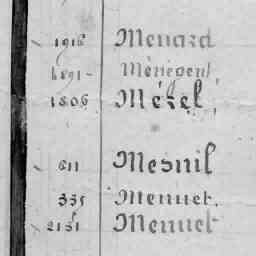 1916 Menard
1891 - Ménégent,
1806 Mézel,
611 Mesnil
335 Mennet.
2151 Mennet